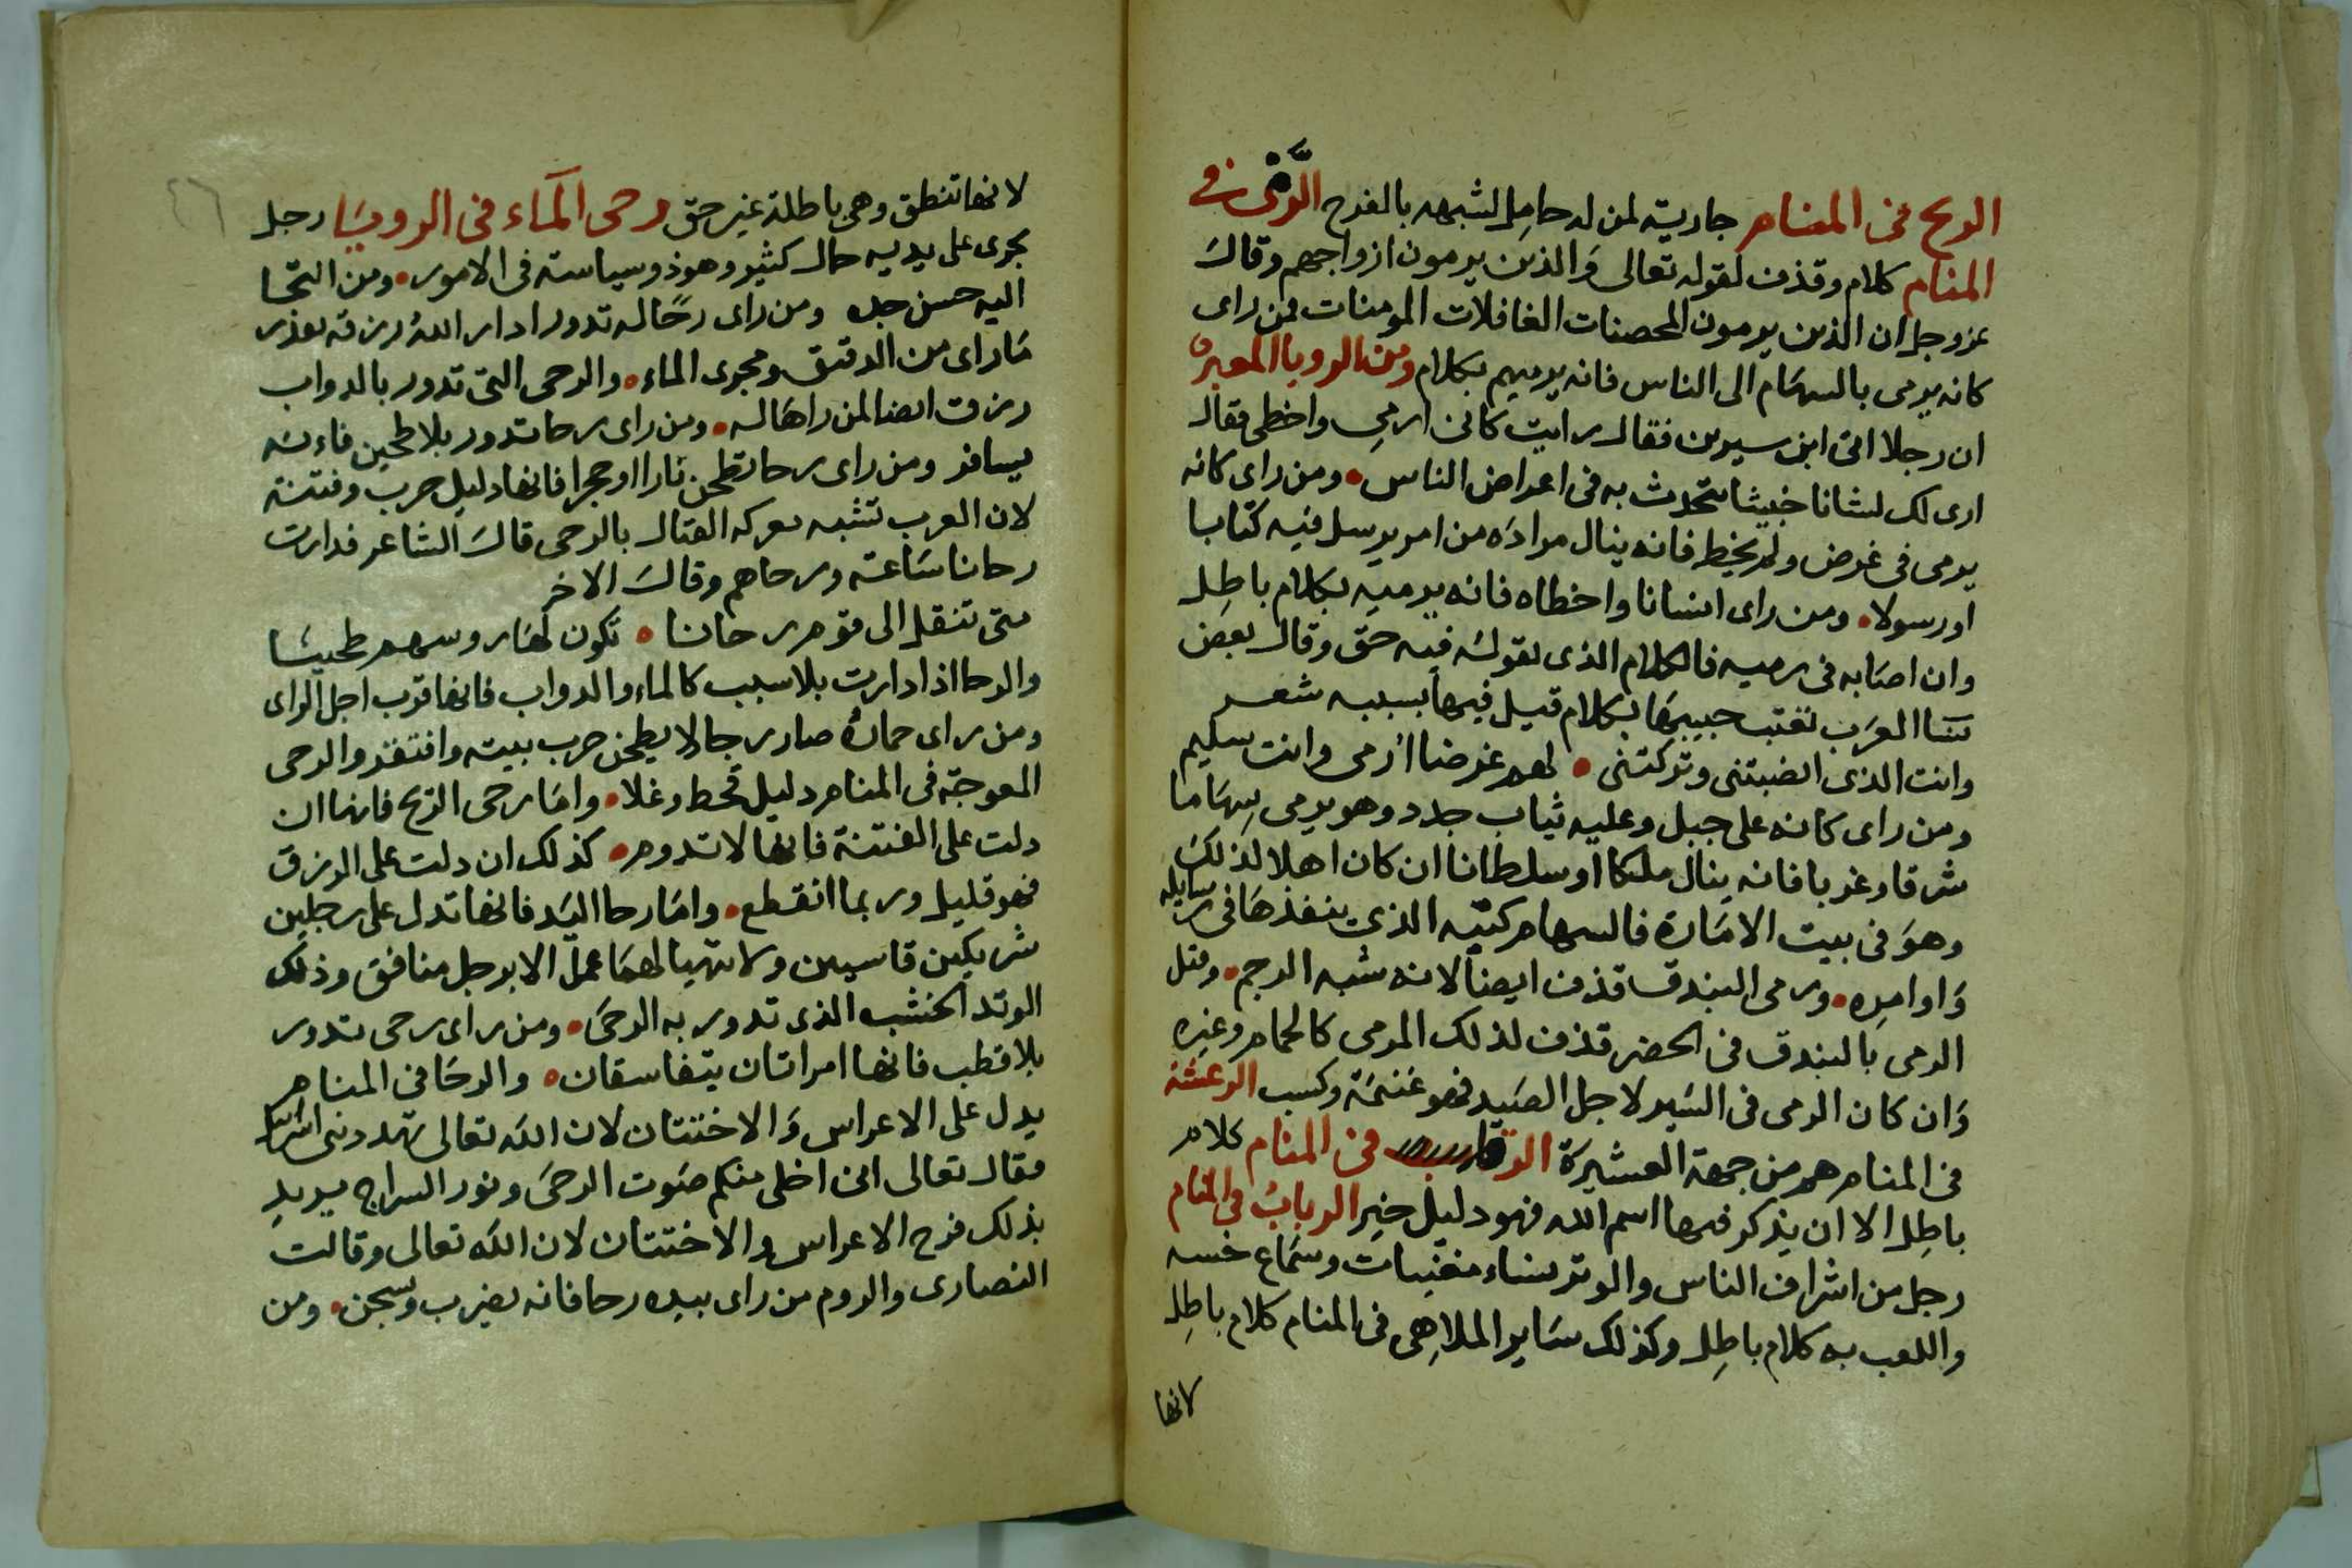 الريح في المنام جارية لمن له حامل لشبهه بالفرح الرَّمى في
المنام كلام وقذف لقوله تعالى والذين يرمون ازواجهم وقال
عز وجل ان الذين يرمون المحصنات الغافلات المومنات فمن راى
كانه يرمى بالسهام الى الناس فانه يرميهم بكلام ومن الرويا المعبرة
ان رجلا اتى ابن سيرين فقال رايت كانى ارمي واخطى فقال
ارى لك لسانا خبيثا تتحدث به فى اعراض الناس ومن راى كانه
يرمى فى غرض ولم يخط فانه ينال مراده من امر يرسل فيه كتابا
او رسولا ومن راى انسانا واخطاه فانه يرميه بكلام باطل
وان اصابه فى رميه فالكلام الذى يقوله فيه حق وقال بعض
نسا العرب تعتب حبيبها بكلام قيل فيها بسببه شعر
وانت الذى انضبتنى وتركتنى لهم غرضا أرمى وانت سليم
ومن راى كانه على جبل وعليه ثياب جدد وهو يرمى سهاما
شرقا وغربا فانه ينال ملكا او سلطانا ان كان اهلا لذلك
وهو فى بيت الامارة فالسهام كتبه الذى ينفذها فى رسايله
واوامره ورمى البندق قذف ايضا لانه شبه الرجم وقتل
الرمى بالبندق فى الحضر قذف لذلك المرمى كالحمام وغيره
وان كان الرمى فى السير لاجل الصيد فهو غنيمة وكسب الرعشة
فى المنام هم من جهة العشيرة فى المنام كلام
باطل الا ان يذكر فيها اسم الله فهو دليل خير الرباب في المنام
رجل من اشراف الناس والوتر نساء مغنيات وسماع خسه
واللعب به كلام باطل وكذلك ساير الملاهى فى المنام كلام باطل
لانها
٤٦
لانها تنطق وهى باطلة غير حق رحى الماء فى الرويا رجل
يجرى على يديه مال كثير وهو ذو سياسته فى الامور ومن التجا
اليه حسن جده ومن راى رحًا له تدور ادار الله رزقه بقدر
ما راى من الدقيق ومجرى الماء والرحى التى تدور بالدواب
رزق ايضا لمن راها له ومن راى رحا تدور بلا طحين فانه
يسافر ومن راى رحا تطحن نارا او حجرا فانها دليل حرب وفتنة
لان العرب تشبه معركه القتال بالرحى قال الشاعر فدارت
رحانا ساعة ورحاهم وقال الاخر
متى تنقل الى قوم رحانا تكون لها روسهم طحينا
والرحا اذا دارت بلا سبب كالماء والدواب فانها قرب اجل الراى
ومن راى حماره صار رجا لا يطحن خرب بيته وافتقر والرحى
المعوجة فى المنام دليل قحط وغلا واما رحى الريح فانها ان
دلت على الفتنة فانها لا تدوم كذلك ان دلت على الرزق
فهو قليل وربما انقطع واما رحا اليد فانها تدل على رجلين
شريكين قاسيين ولا تتهيا لهما عمل الا برجل منافق وذلك
الوتد الخشب الذى تدور به الرحى ومن راى رحى تدور
بلا قطب فانها امراتان يتفاسقان والرحا فى المنام
يدل على الاعراس والاختتان لان الله تعالى تهدد بنى اسرايل
فقال تعالى انى اخلى منكم صوت الرحى ونور السراج يريد
بذلك فرح الاعراس والاختتان لان الله تعالى وقالت
النصارى والروم من راى بيده رحا فانه يضرب وسجن ومن